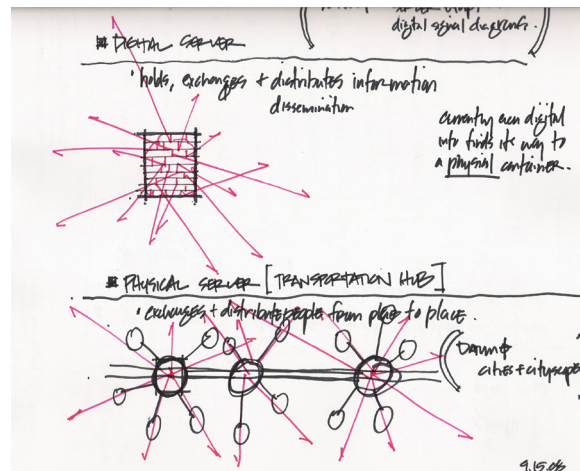 digital signal diagrams.
DIGITAL SERVER
• holds, exchanges + distributes information
dissemination
currently even digital
info finds its way to
a physical container.
PHYSICAL SERVER [TRANSPORTATION HUB]
• exchanges + distribute people from place to place.
cities + cityscape
9.15.08